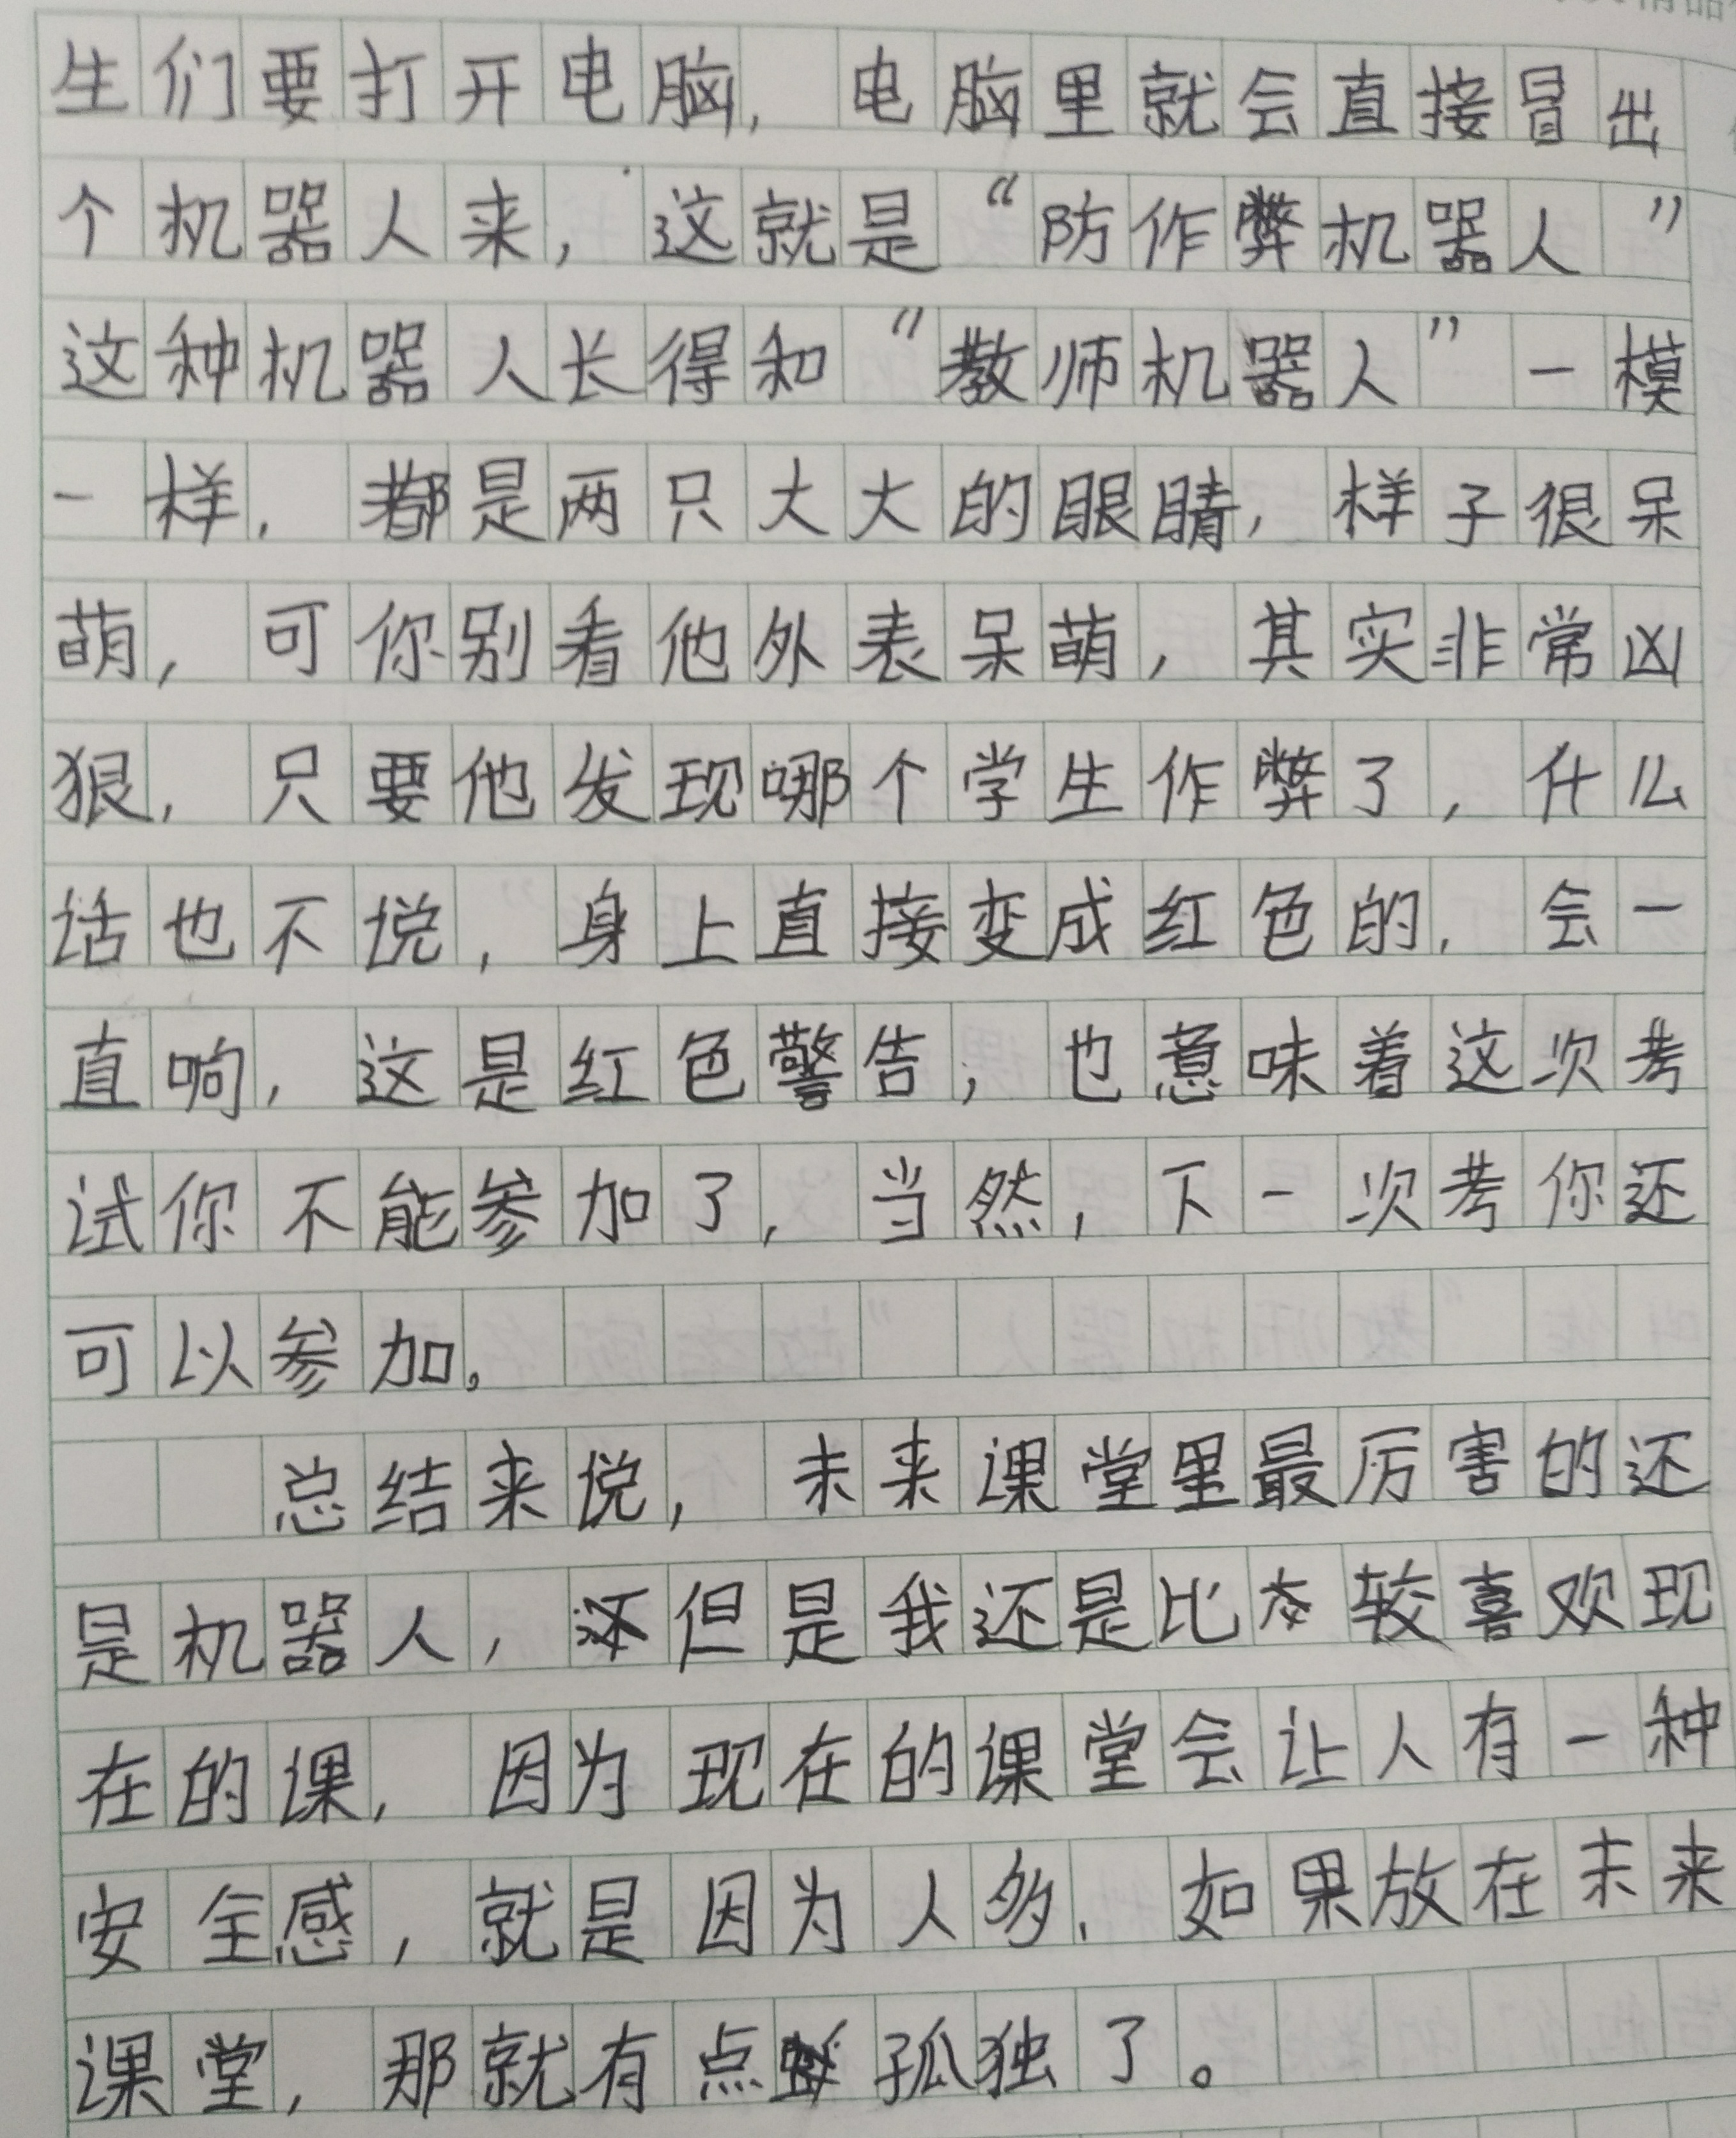 生们要打开电脑，电脑里就会直接冒出
个机器人来，这就是“防作弊机器人”
这种机器人长得和“教师机器人”一模
一样，都是两只大大的眼睛，样子很呆
萌，可你别看他外表呆萌，其实非常凶
狠，只要他发现哪个学生作弊了，什么
话也不说，身上直接变成红色的，会一
直响，这是红色警告，也意味着这次考
试你不能参加了，当然，下一次考你还
可以参加。
总结来说，未来课堂里最厉害的还
是机器人，但是我还是比较喜欢现
在的课，因为现在的课堂会让人有一种
安全感，就是因为人多，如果放在未来
课堂，那就有点孤独了。